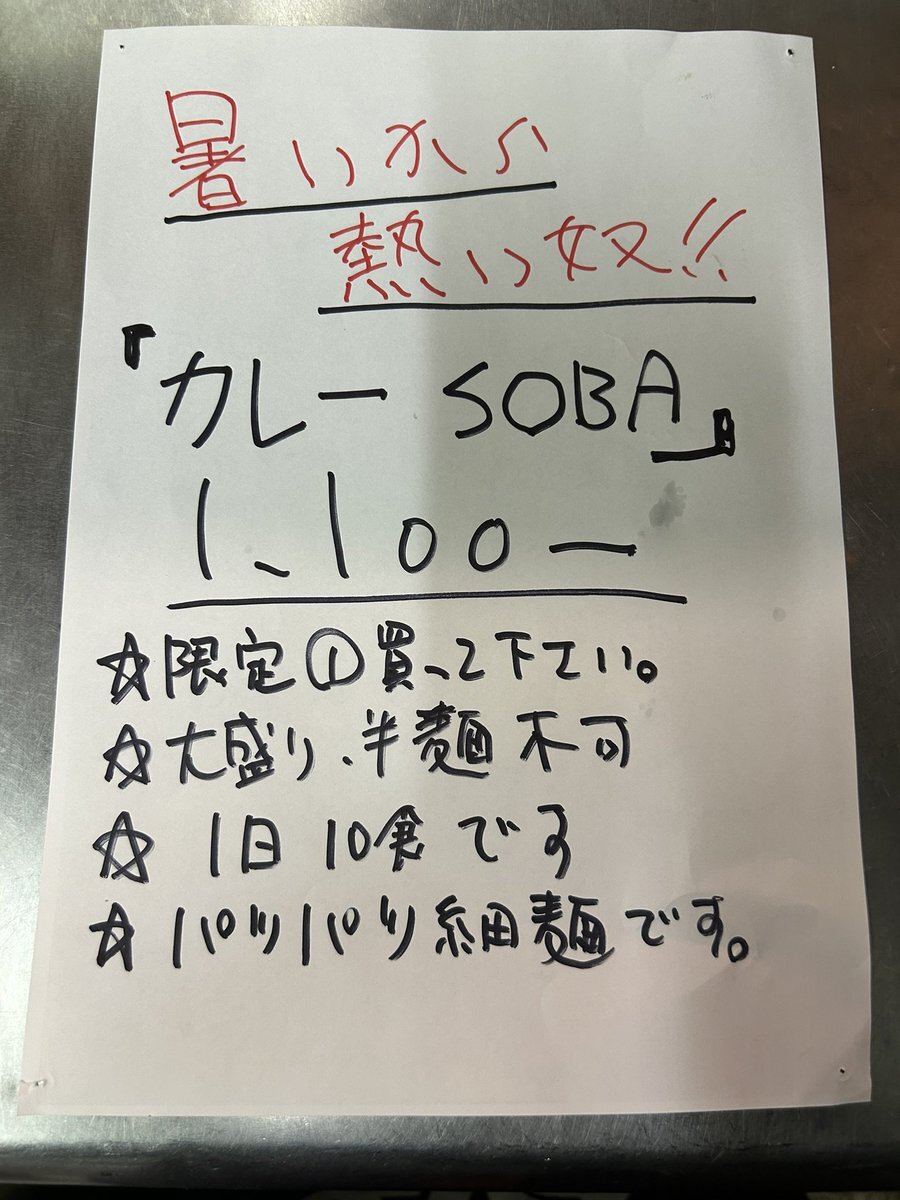 暑いから
熱い奴!!
『カレーSOBA』
1、100ー
☆限定①買って下さい。
☆大盛り、半麺 不可
☆ 1日 10食 です
☆ パツパツ細麺です。